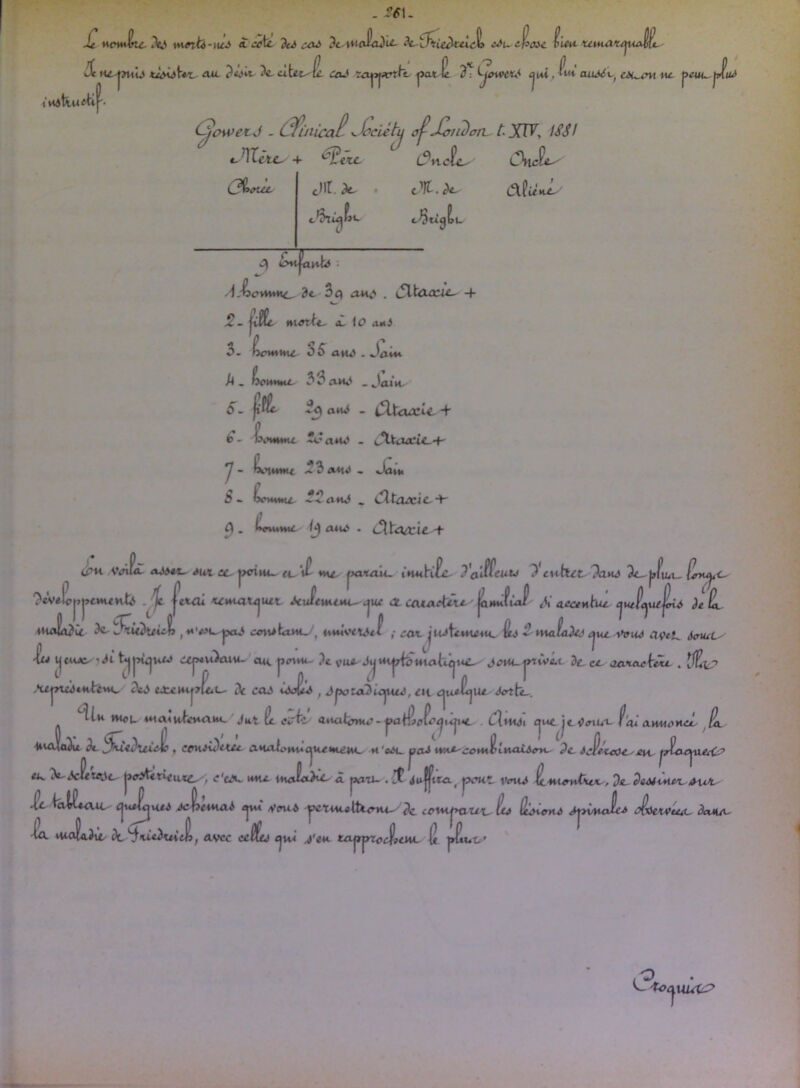 - 261 -
Le nombre des morts-nés à côté des cas de maladie de Friedreich est chose bien remarquable
Je ne puis résister au désir de citer le cas rapporté par le Dr Gowers qui, lui aussi, est on ne peut plus
instructif.
Gowers - Clinical Society of London t. XIV, 1881
Mère + Père Oncle Oncle
Chorée M. de M. de Aliéné
Bright Bright
9 Enfants :
1 homme de 39 ans . Ataxie +
2 - fille morte à 10 ans
3 - homme 35 ans - Sain
4 - homme 33 ans - Sain
5 - fille 29 ans - Ataxie +
6 - homme 26 ans - Ataxie +
7 - homme 23 ans - Sain
8 - homme 22 ans - Ataxie +
9 . homme 19 ans - Ataxie +
En voilà assez sur ce point et il me paraît inutile d'ailleurs d'entrer dans de plus longs
développements - Je ferai remarquer seulement que ce caractère familial si accentué quelquefois de la
maladie de Friedreich, n'est pas constant, universel ; car justement les 2 malades que vous avez sous
les yeux, si typiques cependant au point de vue symptomatique sont privés de ce caractère. Ils
représentent des exemples de cas isolés, sporadiques, en quelque sorte.
Un mot maintenant sur le côté anatomo-pathologique. Ainsi que je vous l'ai annoncé, la
maladie de Friedreich, considérée anatomiquement n'est pas une combinaison de sclérose en plaques
et de sclérose postérieure, c'est une maladie à part. Il suffira, pour vous le montrer, de dessiner sur
le tableau quelques schémas qui vous permettront de comparer les lésions spinales observées dans
la maladie de Friedreich, avec celles qui s'en rapprochent le plus
Croquis